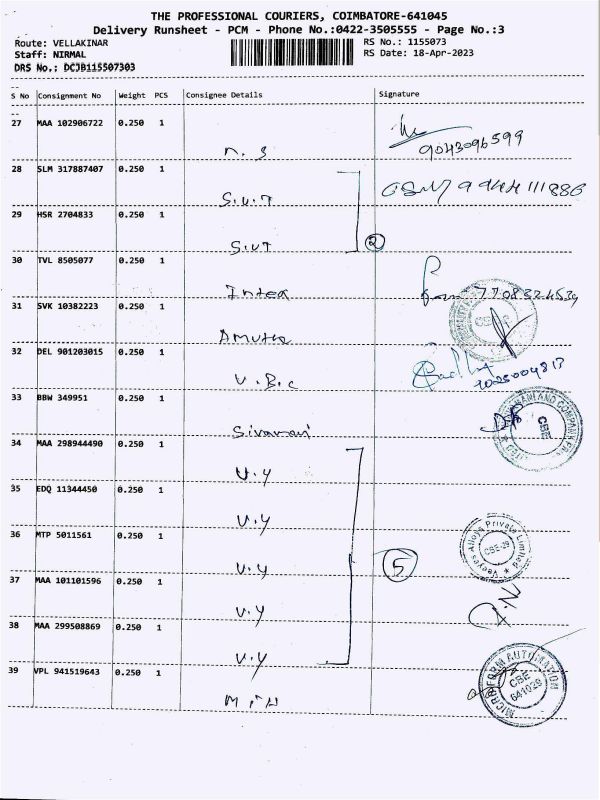 THE PROFESSIONAL COURIERS, COIMBATORE-641045
Delivery Runsheet - PCM - Phone No.:0422-3505555 - Page No.:3
Route: VELLAKINAR RS No.: 1155073
Staff: NIRMAL RS Date: 18-Apr-2023
DRS No.: DCJB115507303
S No Consignment No Weight PCS Consignee Details Signature
27 MAA 102906722 0.250 1
n. s 9043096599
28 SLM 317887407 0.250 1
S.U.T 9944111886
29 HSR 2704833 0.250 1
S.UT 2
30 TVL 8505077 0.250 1
Intea 7708324534
31 SVK 10382223 0.250 1
Amutha
32 DEL 901203015 0.250 1
V.B.C
33 BBW 349951 0.250 1
Sivamani CBE
34 MAA 298944490 0.250 1
V.Y
35 EDQ 11344450 0.250 1
V.Y
36 MTP 5011561 0.250 1 Private Limited CBE-29
V.Y 5
37 MAA 101101596 0.250 1
V.Y
38 MAA 299508869 0.250 1
V.Y
39 VPL 941519643 0.250 1 MICROFORM AUTOMATION CBE 641029